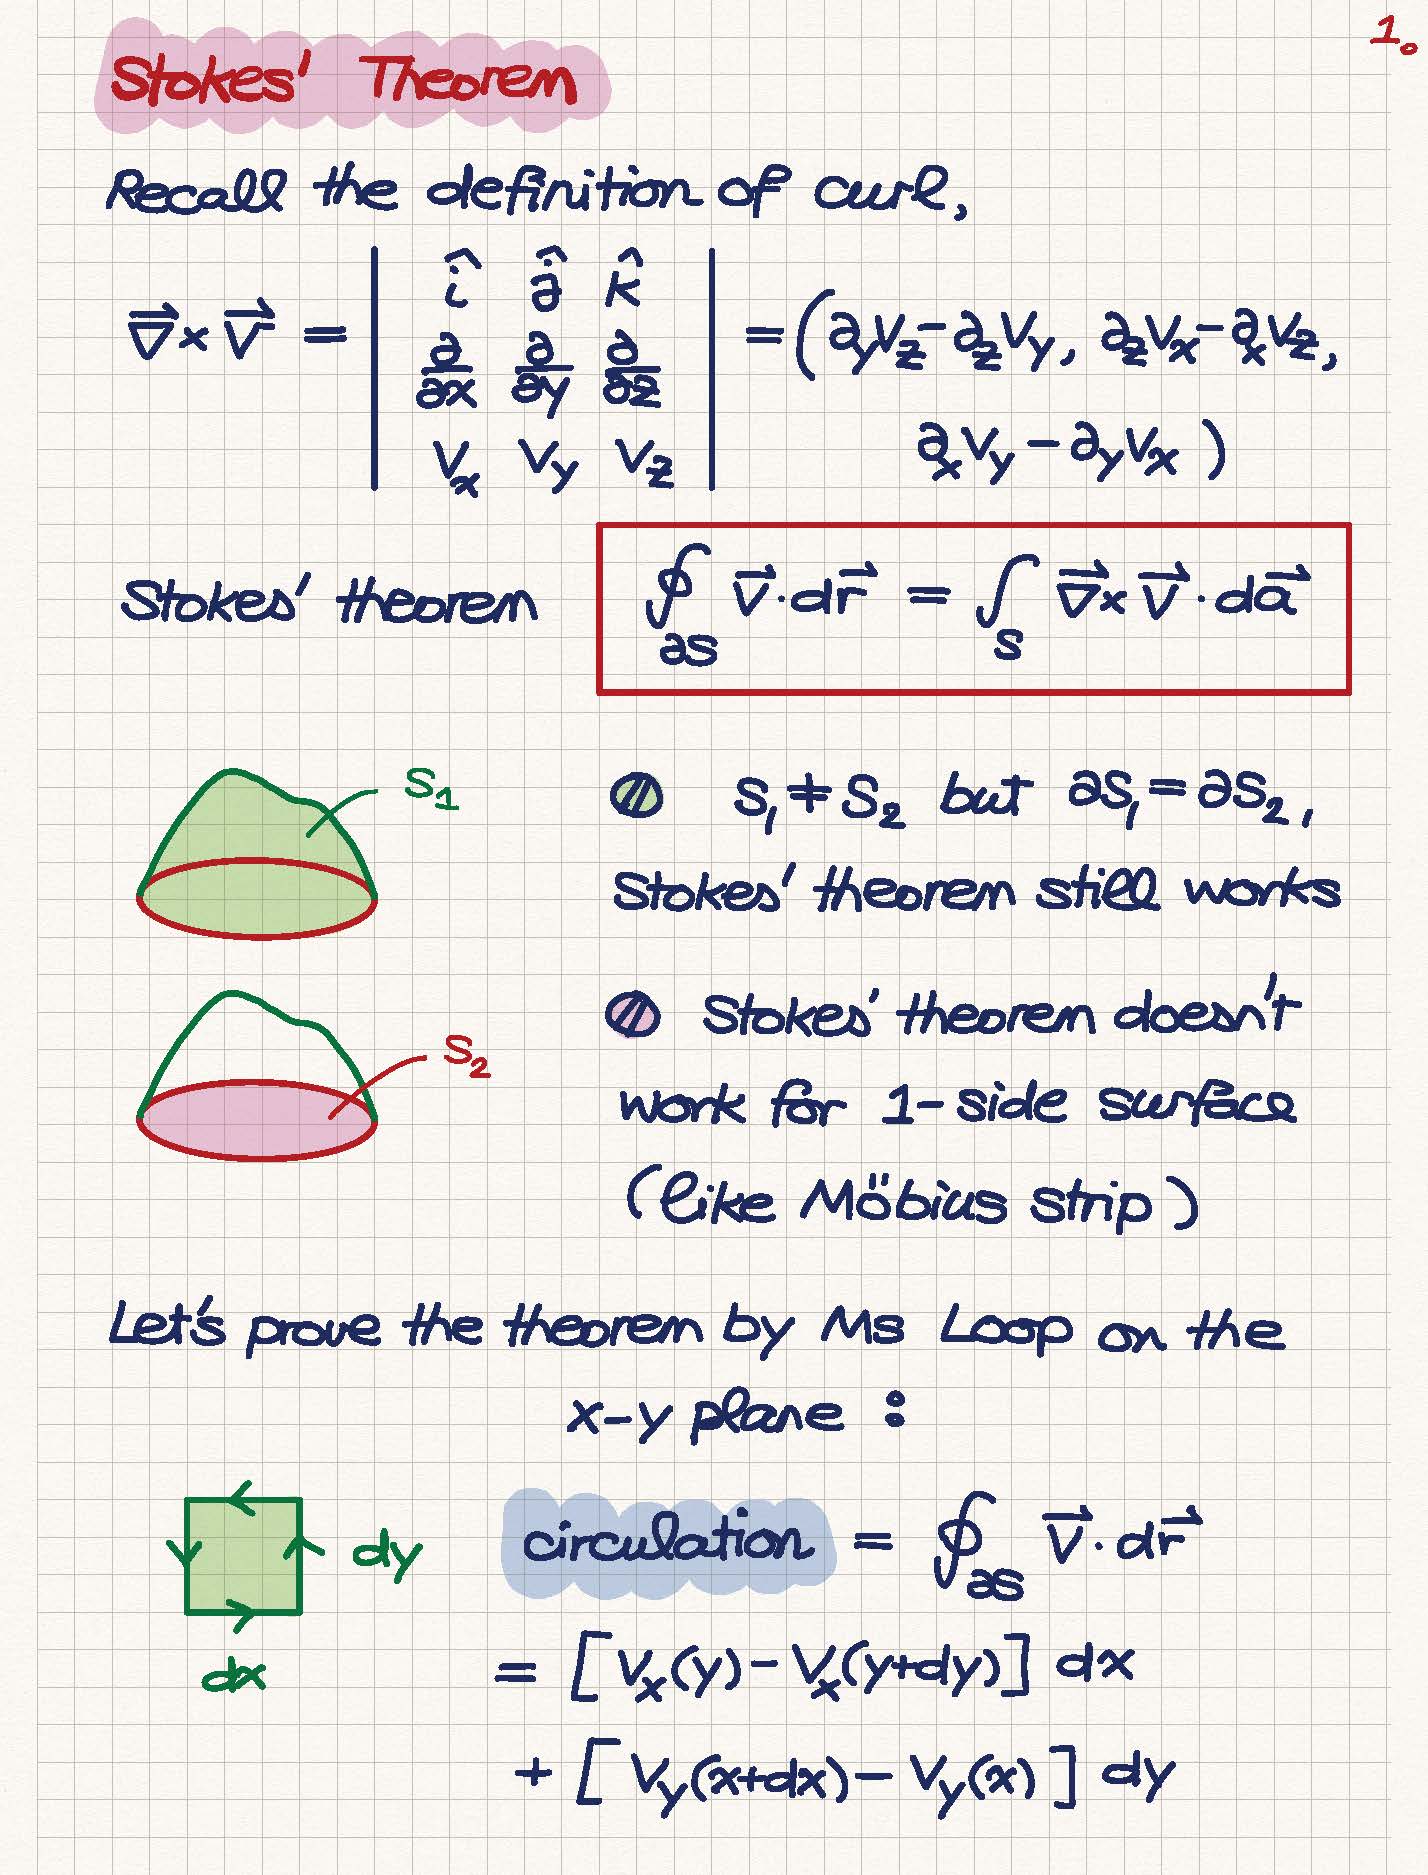 1.
Stokes' Theorem
Recall the definition of curl,
∇⃗ × V⃗ = | î ĵ k̂ |
| ∂/∂x ∂/∂y ∂/∂z |
| Vx Vy Vz |
= (∂yVz − ∂zVy, ∂zVx − ∂xVz,
∂xVy − ∂yVx )
Stokes' theorem ∮∂S V⃗ · dr⃗ = ∫S ∇⃗ × V⃗ · da⃗
S1
S1 ≠ S2 but ∂S1 = ∂S2,
Stokes' theorem still works
S2
Stokes' theorem doesn't
work for 1-side surface
(like Möbius strip)
Let's prove the theorem by Ms Loop on the
x-y plane :
dy
dx
circulation = ∮∂S V⃗ · dr⃗
= [Vx(y) − Vx(y+dy)] dx
+ [Vy(x+dx) − Vy(x)] dy